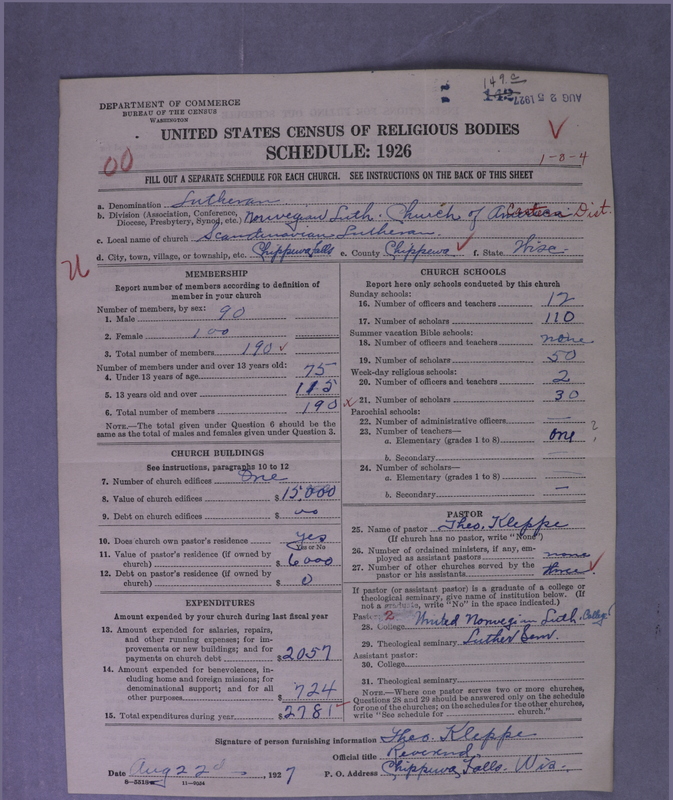 149.a
142
AUG 25 1927
DEPARTMENT OF COMMERCE
BUREAU OF THE CENSUS
WASHINGTON
UNITED STATES CENSUS OF RELIGIOUS BODIES
SCHEDULE: 1926
00
1-8-4
FILL OUT A SEPARATE SCHEDULE FOR EACH CHURCH. SEE INSTRUCTIONS ON THE BACK OF THIS SHEET
a. Denomination Lutheran
b. Division (Association, Conference, Diocese, Presbytery, Synod, etc.) Norwegian Luth. Church of America Dist.
c. Local name of church Scandinavian Lutheran.
d. City, town, village, or township, etc. Chippewa Falls e. County Chippewa f. State Wisc.
MEMBERSHIP
Report number of members according to definition of
member in your church
Number of members, by sex:
1. Male 90
2. Female 100
3. Total number of members 190
Number of members under and over 13 years old:
4. Under 13 years of age 75
5. 13 years old and over 115
6. Total number of members 190
NOTE.—The total given under Question 6 should be the
same as the total of males and females given under Question 3.
CHURCH BUILDINGS
See instructions, paragraphs 10 to 12
7. Number of church edifices One
8. Value of church edifices $15,000
9. Debt on church edifices $ no
10. Does church own pastor's residence yes
Yes or No
11. Value of pastor's residence (if owned by
church) $6000
12. Debt on pastor's residence (if owned by
church) $0
EXPENDITURES
Amount expended by your church during last fiscal year
13. Amount expended for salaries, repairs,
and other running expenses; for im-
provements or new buildings; and for
payments on church debt $2057
14. Amount expended for benevolences, in-
cluding home and foreign missions; for
denominational support; and for all
other purposes $724
15. Total expenditures during year $2781
CHURCH SCHOOLS
Report here only schools conducted by this church
Sunday schools:
16. Number of officers and teachers 12
17. Number of scholars 110
Summer vacation Bible schools:
18. Number of officers and teachers none
19. Number of scholars 50
Week-day religious schools:
20. Number of officers and teachers 2
21. Number of scholars 30
Parochial schools:
22. Number of administrative officers —
23. Number of teachers—
a. Elementary (grades 1 to 8) One ?
b. Secondary
24. Number of scholars—
a. Elementary (grades 1 to 8)
b. Secondary —
PASTOR
25. Name of pastor Theo. Kleppe
(If church has no pastor, write "None")
26. Number of ordained ministers, if any, em-
ployed as assistant pastors none
27. Number of other churches served by the
pastor or his assistants three
If pastor (or assistant pastor) is a graduate of a college or
theological seminary, give name of institution below. (If
not a graduate, write "No" in the space indicated.)
Pastor: 2
28. College United Norwegian Luth. College
29. Theological seminary Luther Sem.
Assistant pastor:
30. College
31. Theological seminary
NOTE.—Where one pastor serves two or more churches,
Questions 28 and 29 should be answered only on the schedule
for one of the churches; on the schedules for the other churches,
write "See schedule for church."
Signature of person furnishing information Theo. Kleppe
Official title Reverend
Date Aug 22d, 1927 P. O. Address Chippewa Falls. Wis.
8—5518a 11—9034